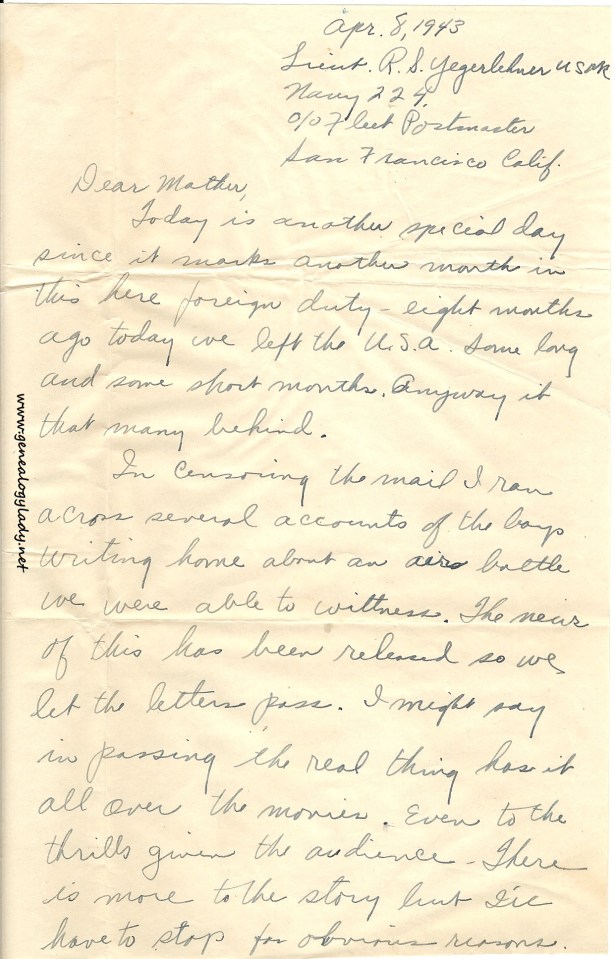 Apr. 8, 1943
Lieut. R. S. Yegerlehner USNR
Navy 224,
c/o Fleet Postmaster
San Francisco Calif.
Dear Mother,
Today is another special day
since it marks another month in
this here foreign duty - eight months
ago today we left the U.S.A. Some long
and some short months. Anyway it
that many behind.
In censoring the mail I ran
across several accounts of the boys
writing home about an aero battle
we were able to wittness. The news
of this has been released so we
let the letters pass. I might say
in passing the real thing has it
all over the movies. Even to the
thrills given the audience - There
is more to the story but I'll
have to stop for obvious reasons.
www.genealogylady.net